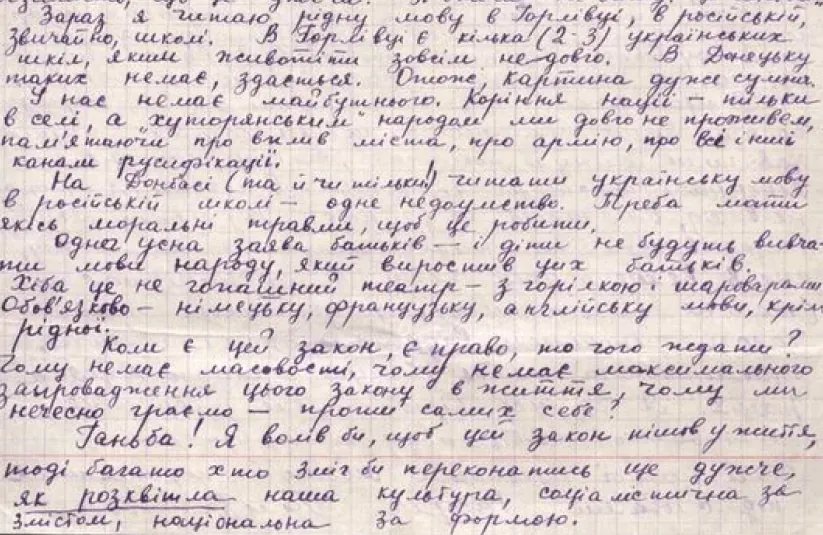 Зараз я читаю рідну мову в Горлівці, в російській,
звичайно, школі. В Горлівці є кілька (2-3) українських
шкіл, яким животіти зовсім недовго. В Донецьку
таких немає, здається. Отож, картина дуже сумна.
У нас немає майбутнього. Коріння нації – тільки
в селі, а „хуторянським" народом ми довго не проживем,
пам'ятаючи про вплив міста, про армію, про всі інші
канали русифікації.
На Донбасі (та й чи тільки!) читати українську мову
в російській школі – одне недоумство. Треба мати
якісь моральні травми, щоб це робити.
Одна усна заява батьків – і діти не будуть вивча-
ти мови народу, який виростив цих батьків.
Хіба це не гопашний театр – з горілкою і шароварами
Обов'язково – німецьку, французьку, англійську мови, крім
рідної.
Коли є цей закон, є право, то чого ждати?
Чому немає масовості, чому немає максимального
запровадження цього закону в життя, чому ми
нечесно граємо – проти самих себе?
Ганьба! Я волів би, щоб цей закон пішов у життя,
тоді багато хто зміг би переконатись ще дужче,
як розквітла наша культура, соціалістична за
змістом, національна за формою.